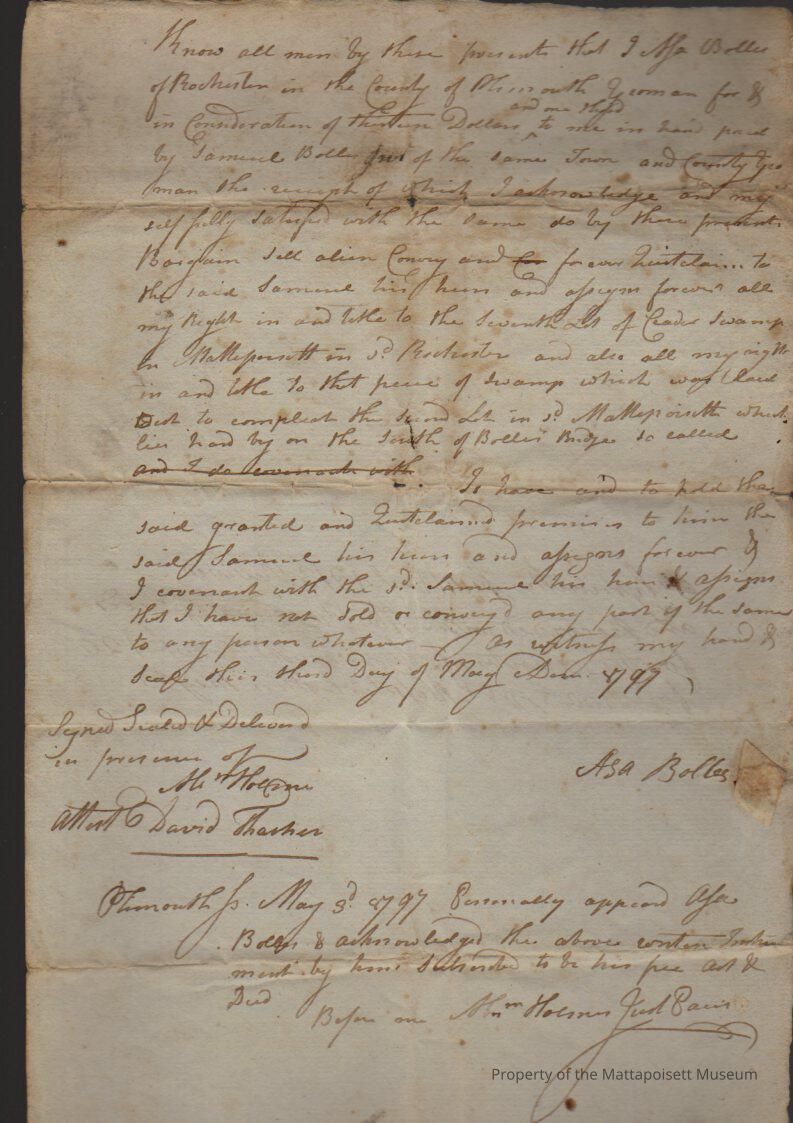 Know all men by these presents that I Asa Bolles
of Rochester in the County of Plimouth Yeoman for &
and one third
in Consideration of thirteen Dollars ^ to me in hand paid
by Samuel Bolles of the same Town and County Yeo
man the receipt of which I acknowledge and my
self fully satisfied with the same do by these presents
Bargain sell alien Convey and forever Quitclaim to
the said Samuel his heirs and assigns forever all
my Right in and title to the Seventh Lot of Ceader Swamp
in Mattepoisett in sd. Rochester and also all my right
in and title to that peece of swamp which was laid
out to compleat the Lot in sd Mattepoisett which
lies hard by on the South of Bolles Bridge so called
and I do covenant with To have and to hold the
said granted and Quitclaimd premises to him the
said Samuel his heirs and assigns forever &
I covenant with the sd. Samuel his heirs & assigns
that I have not Sold or conveyd any part of the same
to any person whatever — As witness my hand &
Seal this third Day of May 1797
Signed Sealed & Deliverd
in presence of
Asa Bolles
Abrm Holmes
Attest David Thacher
Plimouth Ss. May 3d. 1797 Personally appeard Asa
Bolles & acknowledged the above written Instru
ment by him Subscribed to be his free act &
Deed
Before me Abrm Holmes Just Pacis
Property of the Mattapoisett Museum